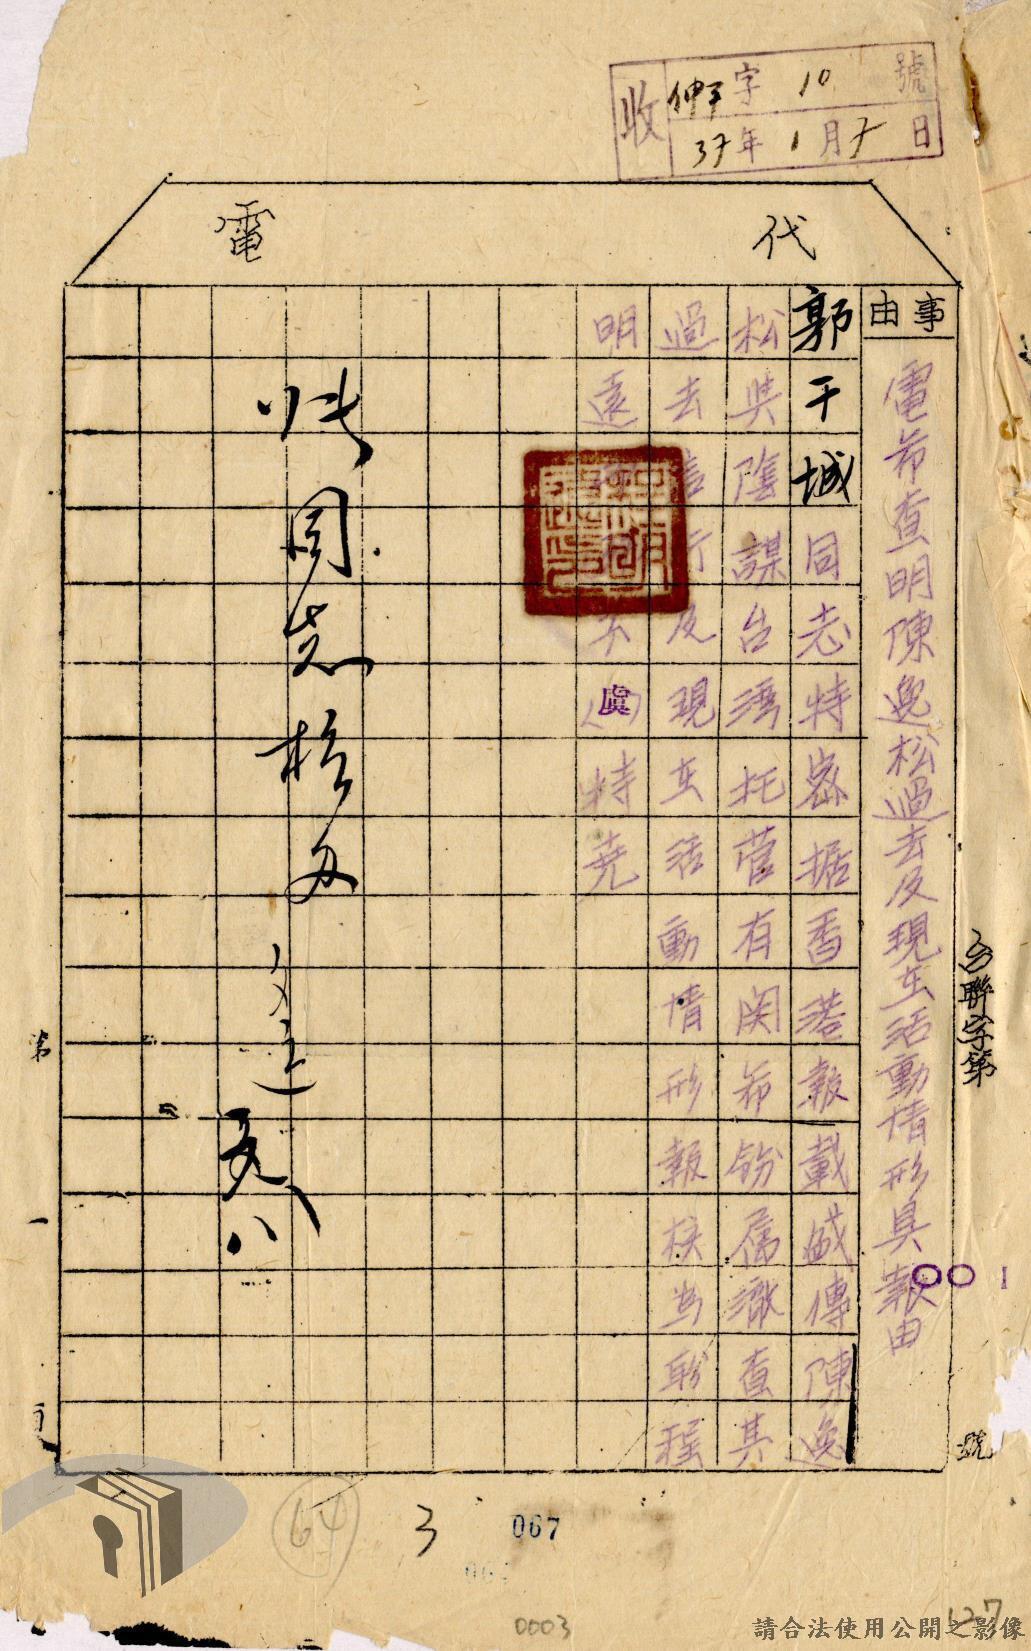 收
伸字10號
37年1月7日
代電
事由
電希查明陳逸松過去及現在活動情形具報由
郭干城同志特密据香港報載盛傳陳逸
松與陰謀台灣托管有関希飭屬澈查其
過去言行及現在活動情形報核為盼程
明遠
(虞)特堯
同志核办
八
台聯字第
001
號
第一頁
64
3
067
0003
127
請合法使用公開之影像